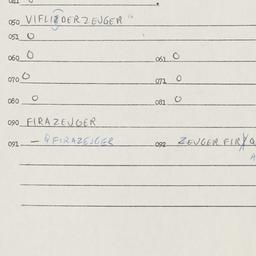 050 VIFLIZDERZEUGER "
051 0
060 0 061 0
070 0 071 0
080 0 081 0
090 FIRAZEUGER
091 - QFIRAZEUGER 092 ZEUGER FIR